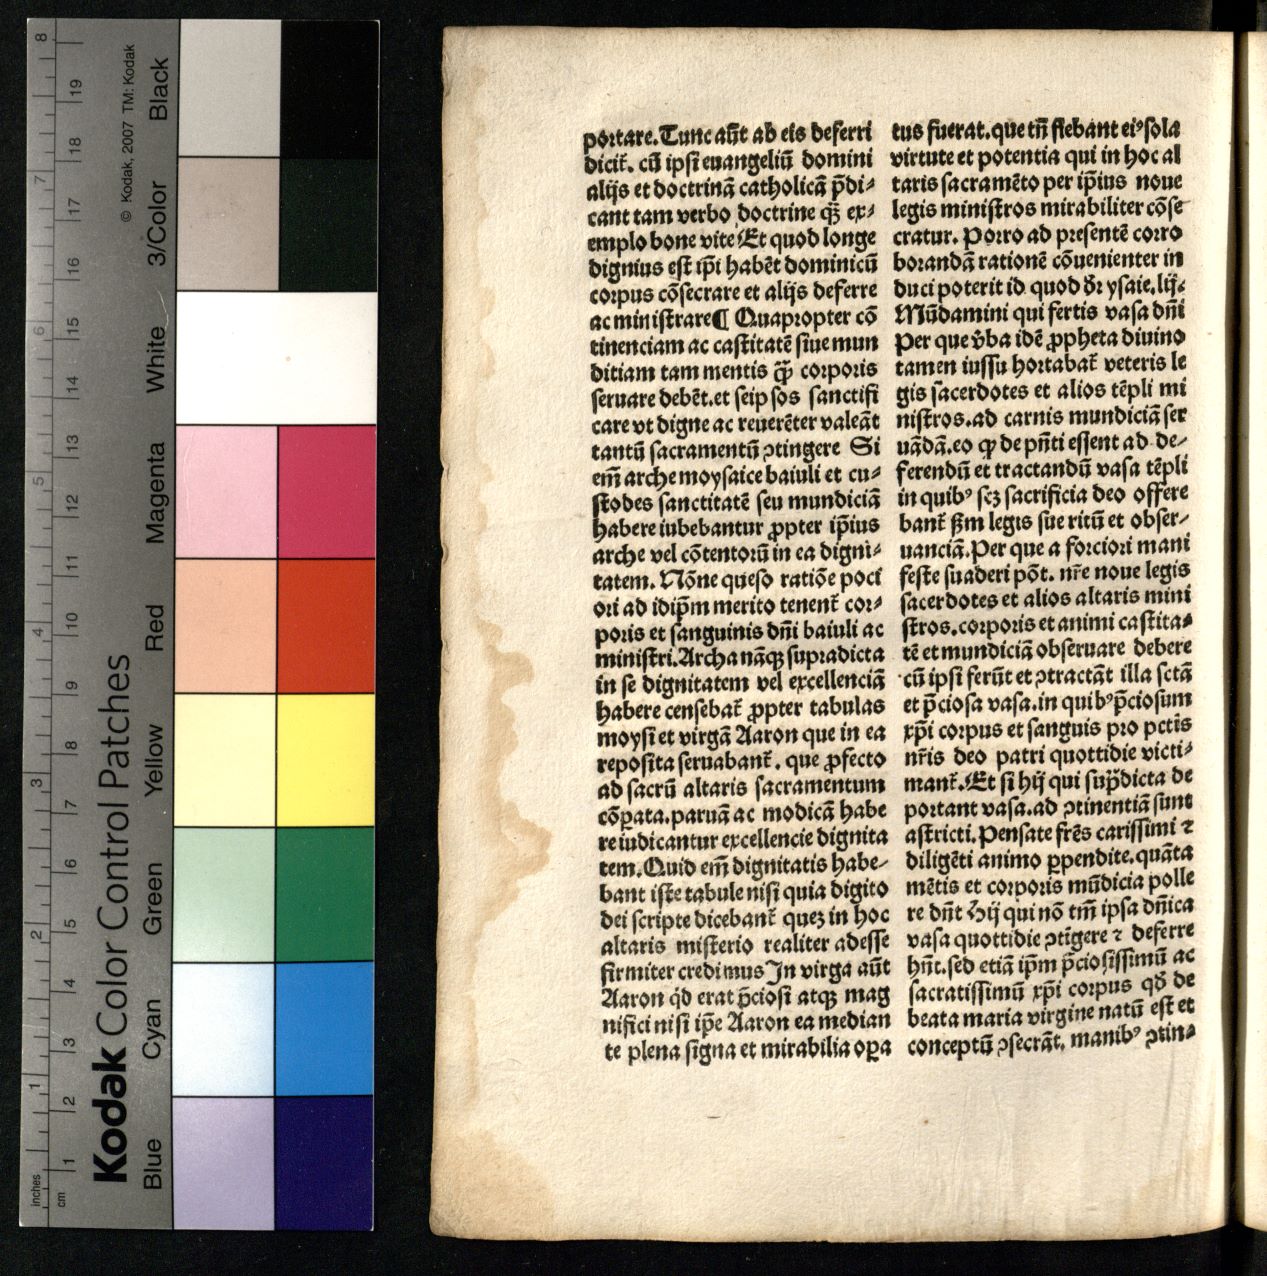 portare.Tunc aūt ab eis deferri
dicit᷑. cū ipsi euangeliū domini
alijs et doctrinā catholicā p̄di⸗
cant tam verbo doctrine qꝫ̈ ex⸗
emplo bone vite Et quod longe
dignius est ip̄i habēt dominicū
corpus cōsecrare et alijs deferre
ac ministrare¶ Quapropter cō
tinenciam ac castitatē siue mun
ditiam tam mentis ꝙ̄ corporis
seruare debēt.et seip sos sanctifi
care vt digne ac reuerēter valeāt
tantū sacramentū ꝯtingere Si
em̄ arche moysaice baiuli et cu⸗
stodes sanctitatē seu mundiciā
habere iubebantur ꝓpter ip̄ius
arche vel cōtentorū in ea digni⸗
tatem. Nōne queso ratiōe poci
ori ad idip̄m merito tenent᷑ cor⸗
poris et sanguinis dn̄i baiuli ac
ministri.Archa nāqꝫ supradicta
in se dignitatem vel excellenciā
habere censebat᷑ ꝓpter tabulas
moysi et virgā Aaron que in ea
reposita seruabant᷑. que ꝓfecto
ad sacrū altaris sacramentum
cōꝑata.paruā ac modicā habe
re iudicantur excellencie dignita
tem.Quid em̄ dignitatis habe⸗
bant iste tabule nisi quia digito
dei scripte dicebant᷑ quez in hoc
altaris misterio realiter adesse
firmiter credimus In virga aūt
Aaron qd̓ erat p̄ciosi atqꝫ mag
nifici nisi ip̄e Aaron ea median
te plena signa et mirabilia oꝑa
tus fuerat.que tn̄ fiebant eiꝰ sola
virtute et potentia qui in hoc al
taris sacramēto per ip̄ius noue
legis ministros mirabiliter cōse
cratur. Porro ad presentē corro
borandā rationē cōuenienter in
duci poterit id quod dr᷑ ysaie.lij⸗
Mūdamini qui fertis vasa dn̄i
Per que v̓ba idē ꝓpheta diuino
tamen iussu hortabat᷑ veteris le
gis sacerdotes et alios tēpli mi
nistros.ad carnis mundiciā ser
uādā.eo ꝙ de pn̄ti essent ad de⸗
ferendū et tractandū vasa tēpli
in quibꝰ scꝫ sacrificia deo offere
bant᷑ ẜm legis sue ritū et obser⸗
uanciā.Per que a forciori mani
feste suaderi pōt. nr̄e noue legis
sacerdotes et alios altaris mini
stros.corporis et animi castita⸗
tē et mundiciā obseruare debere
cū ipsi ferūt et ꝯtractāt illa sctā
et p̄ciosa vasa.in quibꝰ p̄ciosum
xp̄i corpus et sanguis pro pctis
nr̄is deo patri quottidie victi⸗
mant᷑.Et si hij qui sup̄dicta de
portant vasa.ad ꝯtinentiā sunt
astricti.Pensate fr̄es carissimi ⁊
diligēti animo ꝑpendite.quāta
mētis et corporis mūdicia polle
re dn̄t Hij qui nō tm̄ ipsa dn̄ica
vasa quottidie ꝯtīgere ⁊ deferre
hn̄t.sed etiā ip̄m p̄ciosissimū ac
sacratissimū xp̄i corpus qd̓ de
beata maria virgine natū est et
conceptū ꝯsecrāt. manibꝰ ꝯtin⸗
Kodak Color Control Patches
© Kodak, 2007 TM: Kodak
Blue
Cyan
Green
Yellow
Red
Magenta
White
3/Color
Black
inches
1
2
3
4
5
6
7
8
cm
1
2
3
4
5
6
7
8
9
10
11
12
13
14
15
16
17
18
19